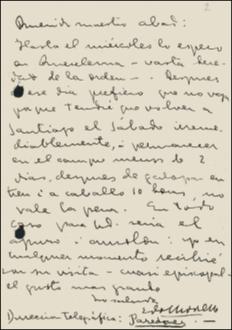 2
Querido nuestro abad:
Hasta el miércoles lo espero
en Anculemu - vasta here-
dad de la orden -. Despues
de ese dia prefiero que no venga
porque tendré que volver a
Santiago el Sábado ireme-
diablemente, i permanecer
en el campo menos de 2
dias, despues de galopar en
tren i a caballo 10 horas, no
vale la pena. En todo
caso para Ud. seria el
apuro i amolon: yo en
cualquier momento recibiré
su visita - cuasi episcopal -
el gusto mas grande
Lo saluda
Direccion telegráfica: Paredones